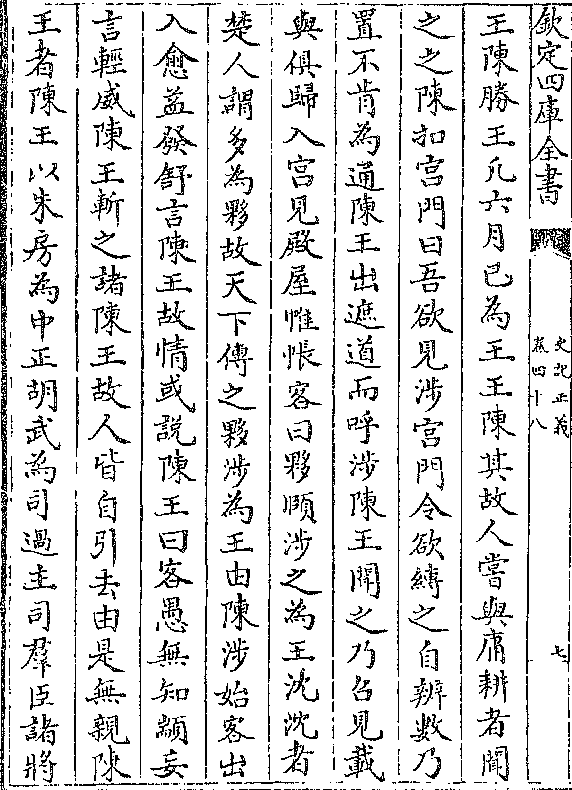 欽定四庫全書
史記正義
卷四十八
七
王陳勝王凡六月已為王王陳其故人嘗與庸耕者聞
之之陳扣宮門曰吾欲見涉宮門令欲縛之自辨數乃
置不肯為通陳王出遮道而呼涉陳王聞之乃召見載
與俱歸入宮見殿屋帷帳客曰夥頤涉之為王沈沈者
楚人謂多為夥故天下傳之夥涉為王由陳涉始客出
入愈益發舒言陳王故情或説陳王曰客愚無知顓妄
言輕威陳王斬之諸陳王故人皆自引去由是無親陳
王者陳王以朱房為中正胡武為司過主司羣臣諸將